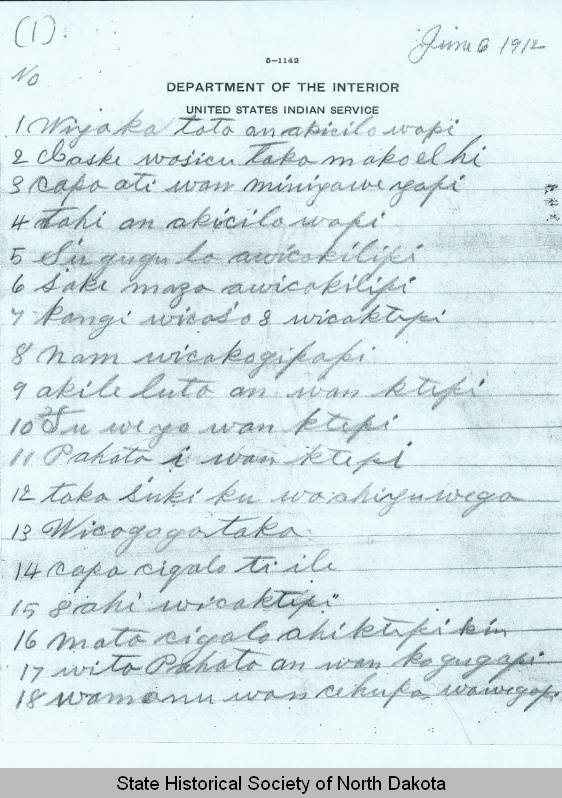 (1)
June 6 1912
5-1142
No
DEPARTMENT OF THE INTERIOR
UNITED STATES INDIAN SERVICE
1 Wiyaka toto an akicilowapi
2 Caske wasicu tako makoel hi
3 Capa ati wan miniyaweyapi
4 tahi an akicilowapi
5 Su gugu la awicakilipi
6 sake maza awicakilipi
7 Kangi wicasa 8 wicaktepi
8 Nam wicakogipapi
9 akile luta an wan ktepi
10 Tu weya wan ktepi
11 Pahata i wan ktepi
12 taka suki ku wa ahiyuwega
13 Wicogogo taka
14 Capa cigala ti ile
15 8 ahi wicaktepi
16 mato cigala ahiktepi kin
17 wita Pahata an wan kagugapi
18 wamanu wan cehupa wawegapi
State Historical Society of North Dakota